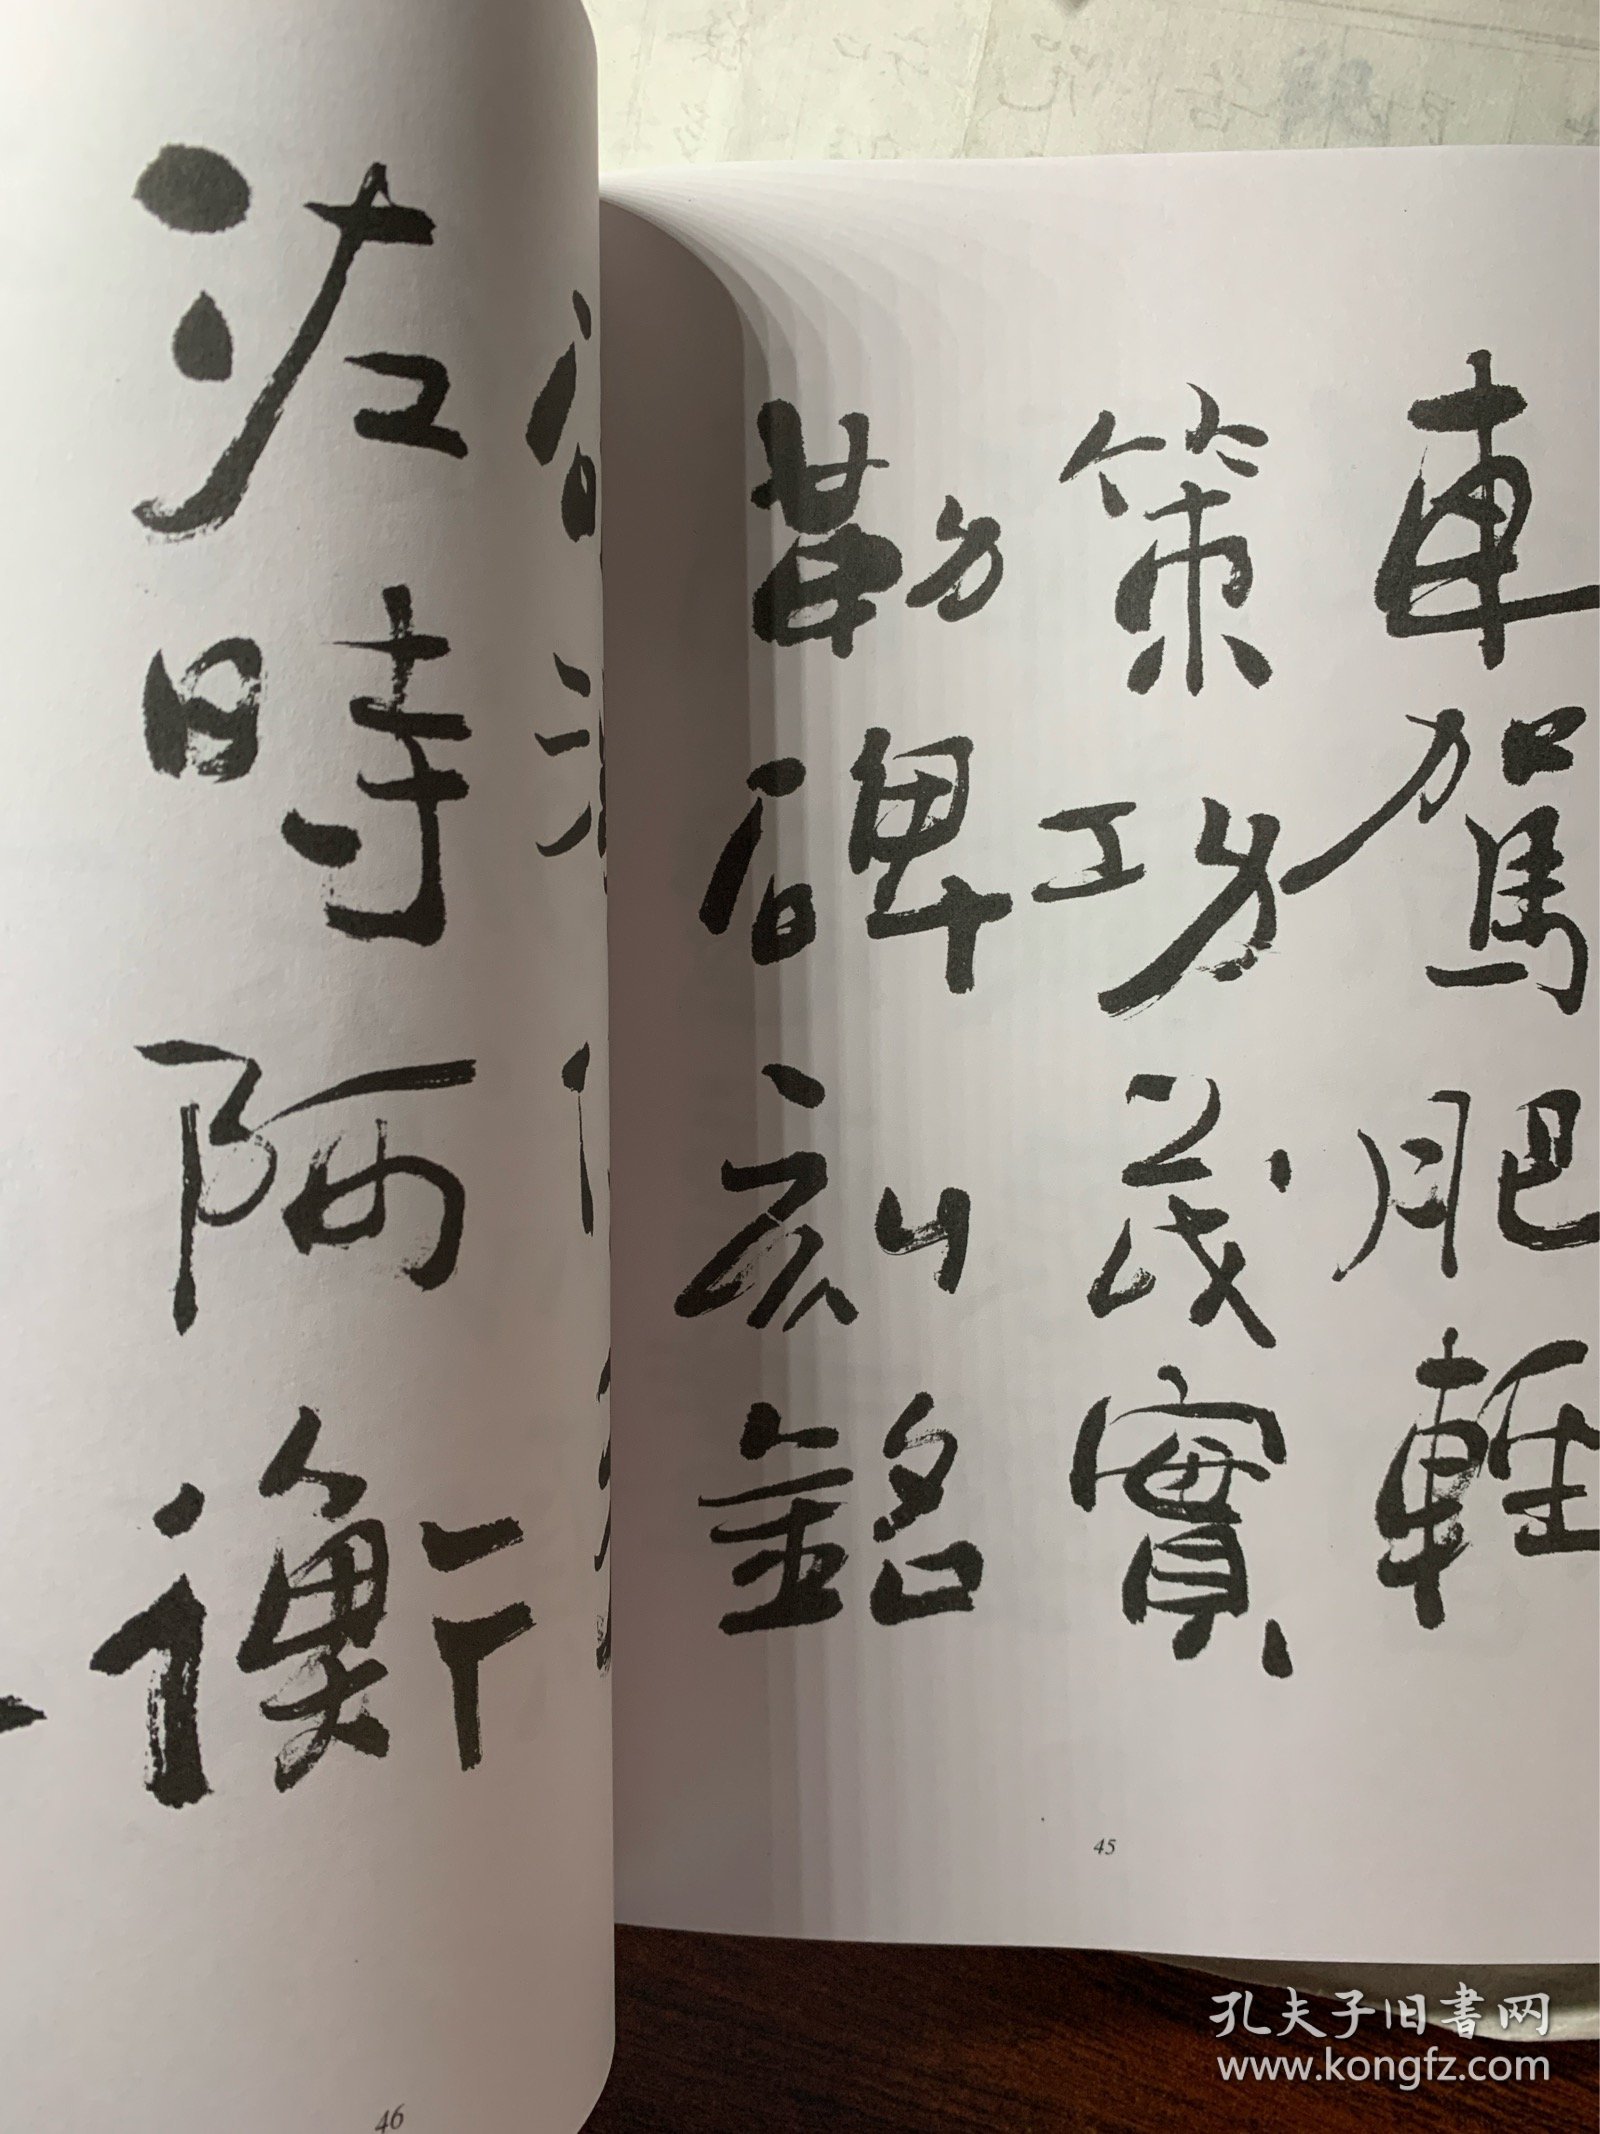 車駕肥輕
策功茂實
勒碑刻銘
45
佐時阿衡
46
孔夫子旧書网
www.kongfz.com